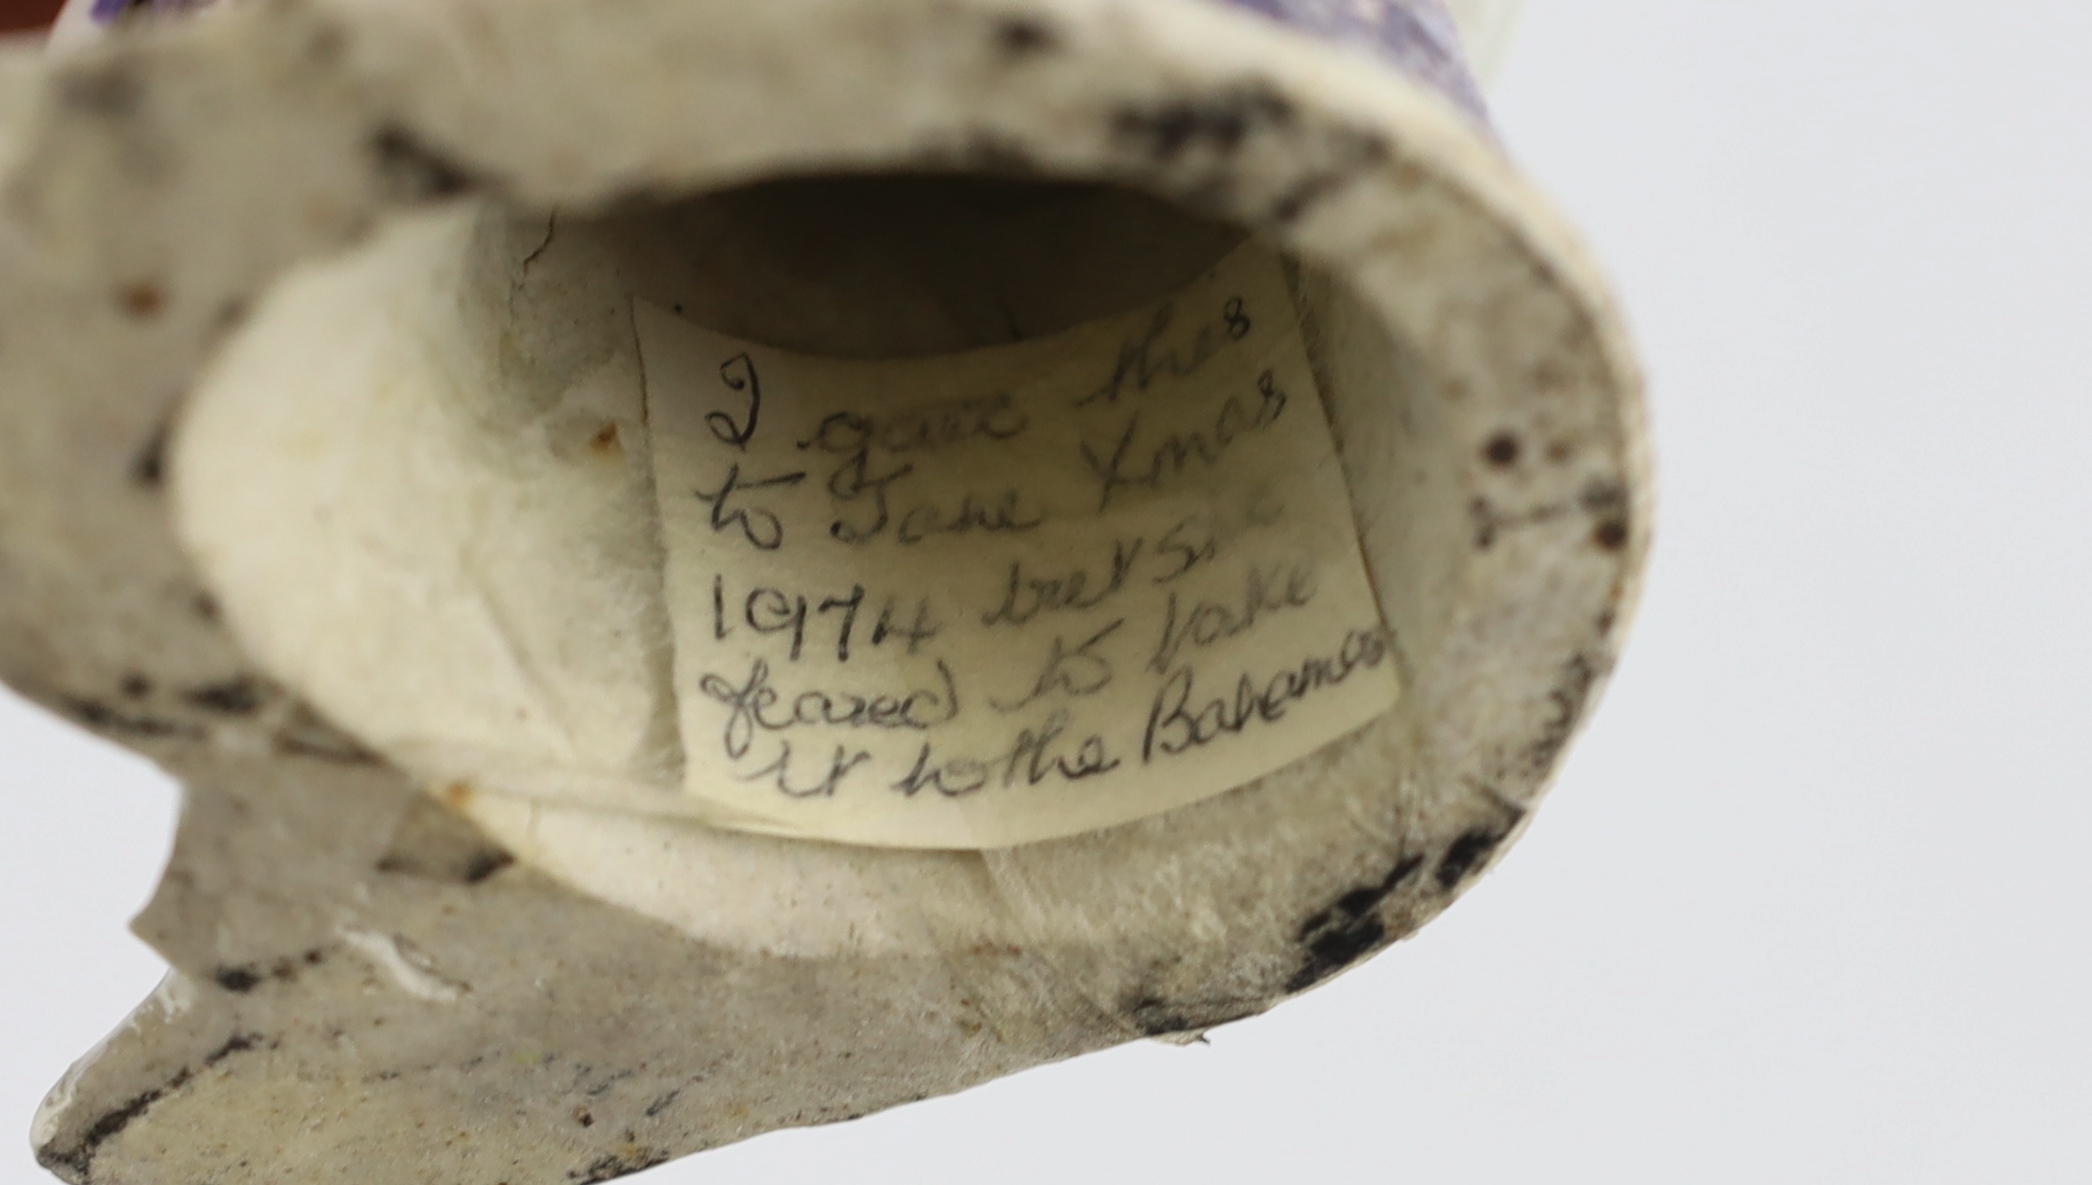 I gave this
to Jane Xmas
1974 but she
feared to take
it to the Bahamas